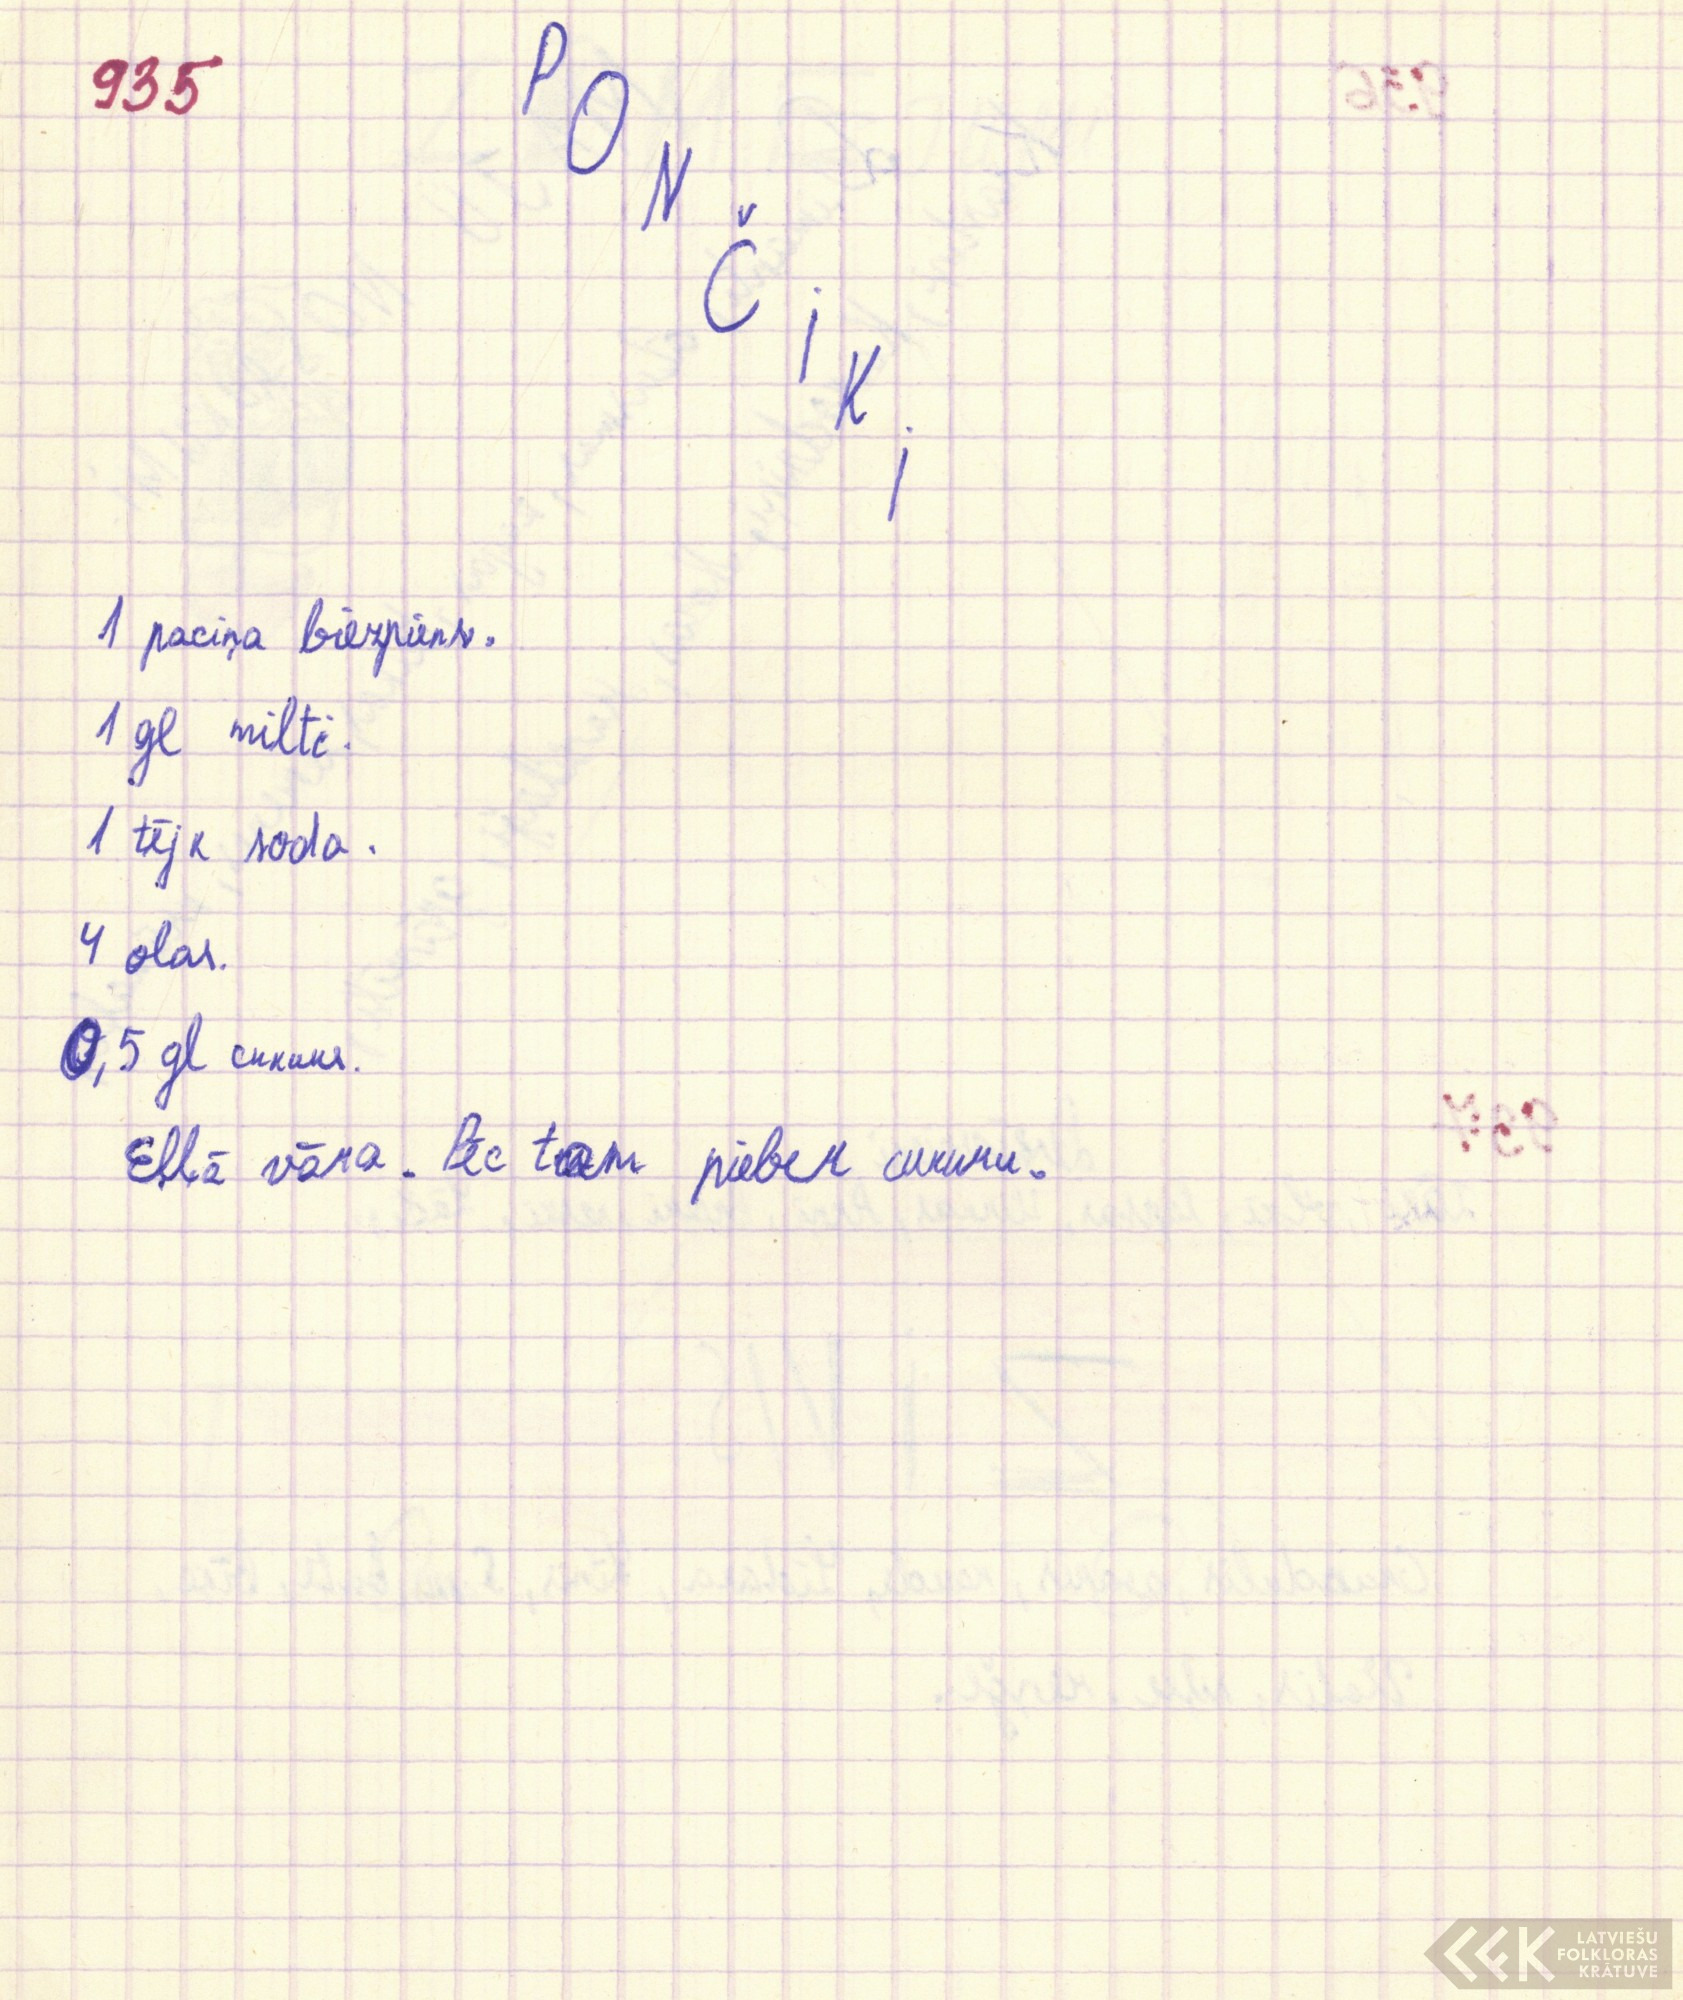 935
PONČiKi
1 paciņa biezpiens.
1 gl milti.
1 tējk soda.
4 olas.
0,5 gl cukurs.
Eļļā vāra. Pēc tam pieber cukuru.
LATVIEŠU
FOLKLORAS
KRĀTUVE